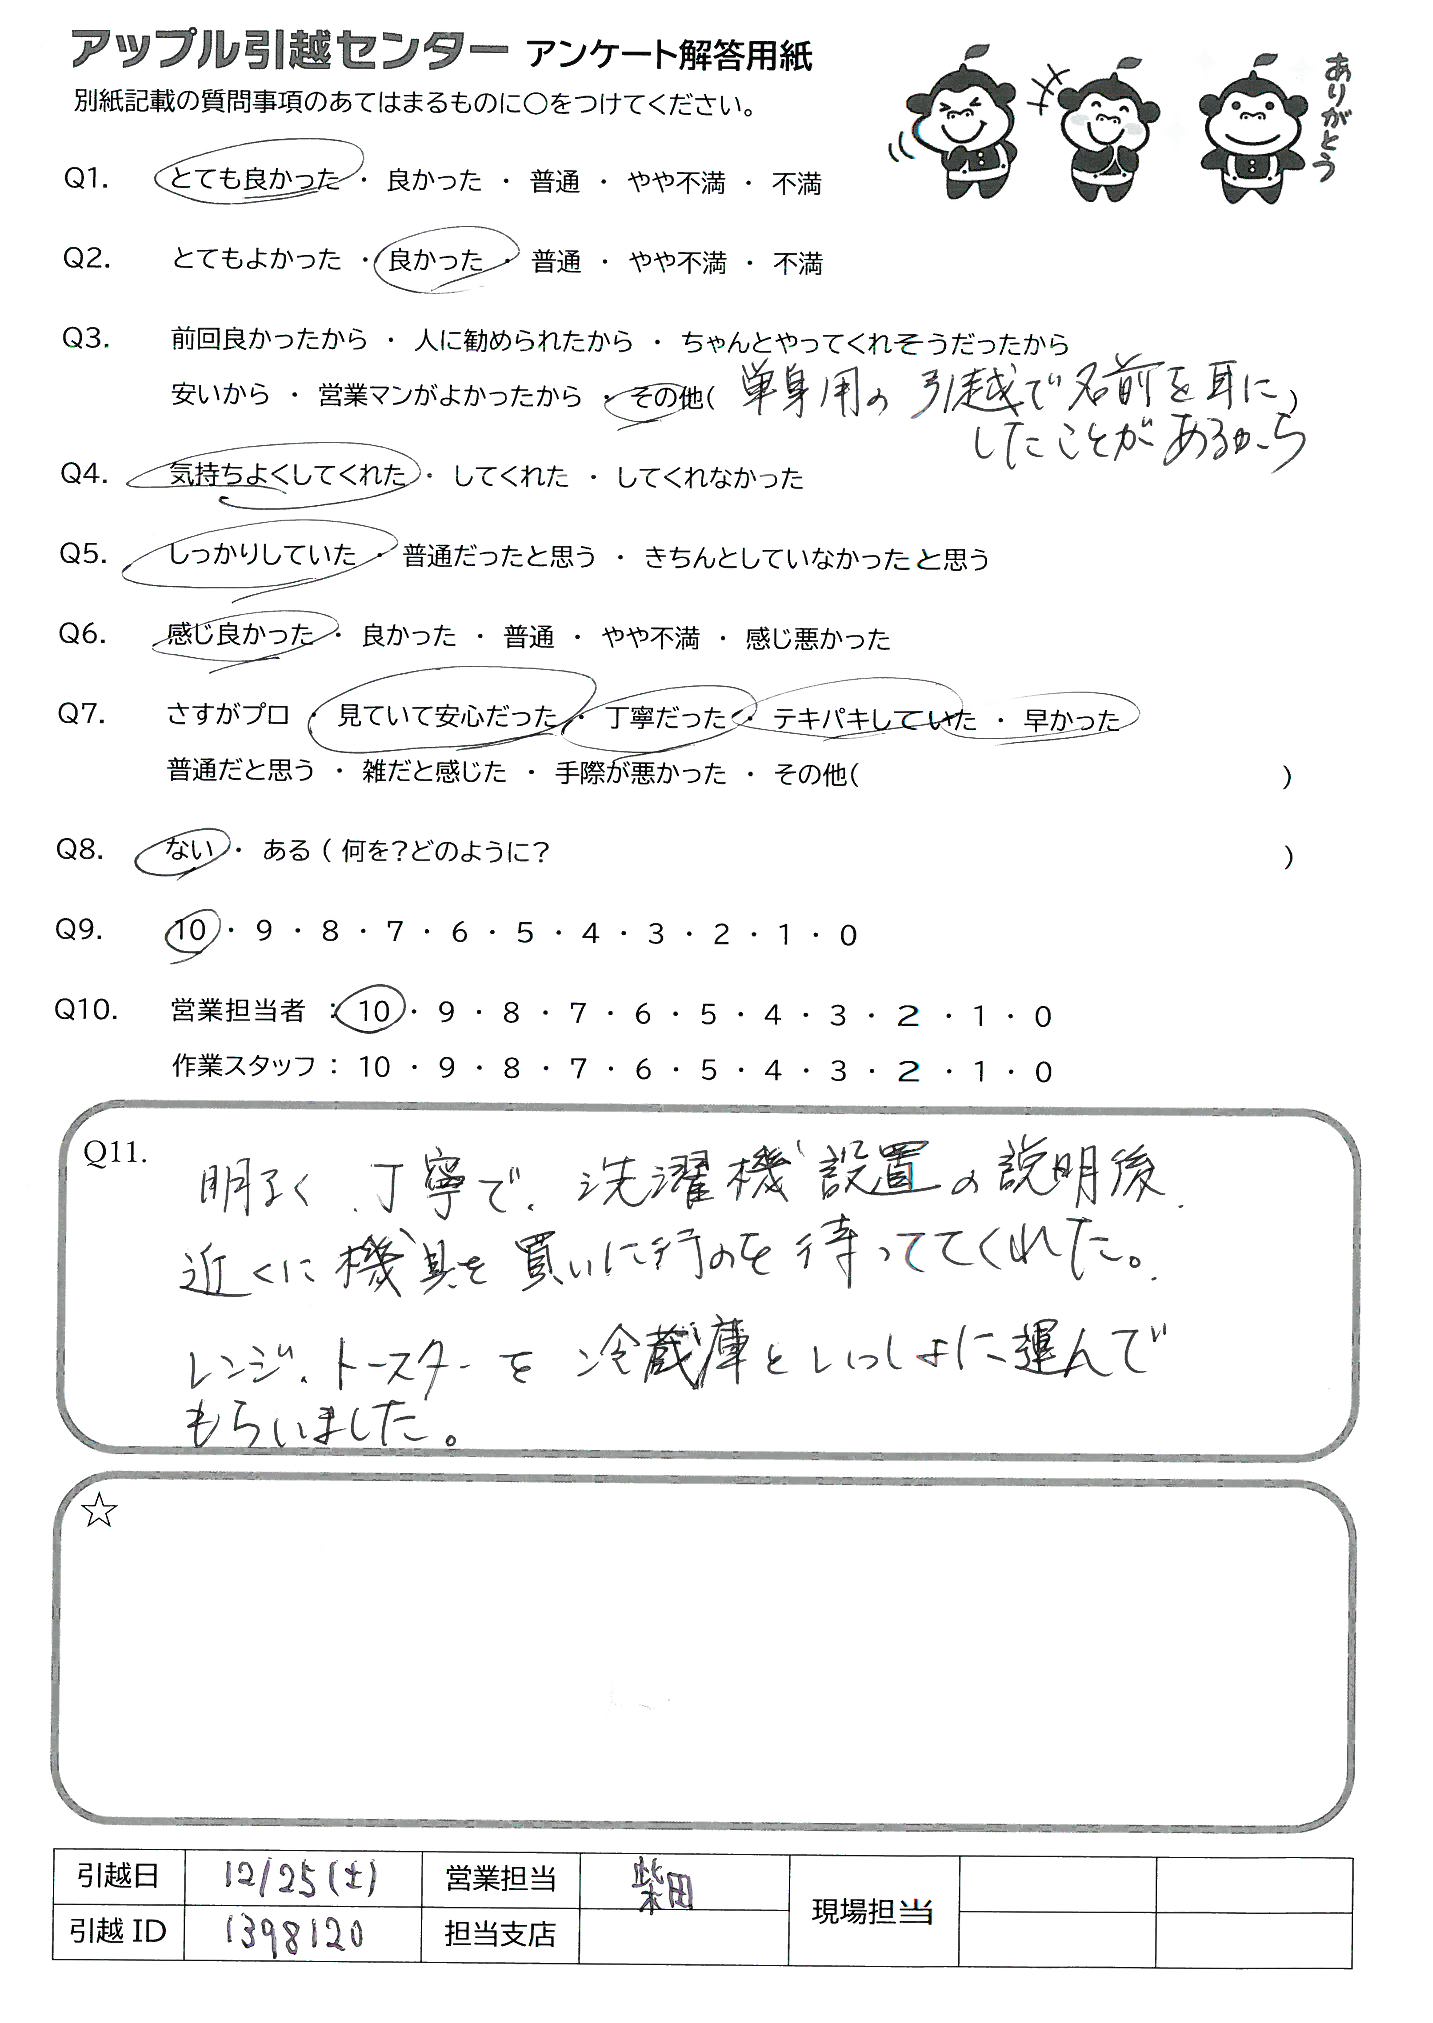 アップル引越センター アンケート解答用紙
別紙記載の質問事項のあてはまるものに○をつけてください。
ありがとう
Q1. とても良かった ・ 良かった ・ 普通 ・ やや不満 ・ 不満
Q2. とてもよかった ・ 良かった ・ 普通 ・ やや不満 ・ 不満
Q3. 前回良かったから ・ 人に勧められたから ・ ちゃんとやってくれそうだったから
安いから ・ 営業マンがよかったから ・ その他( 単身用の引越で名前を耳に )
したことがあるから
Q4. 気持ちよくしてくれた ・ してくれた ・ してくれなかった
Q5. しっかりしていた ・ 普通だったと思う ・ きちんとしていなかったと思う
Q6. 感じ良かった ・ 良かった ・ 普通 ・ やや不満 ・ 感じ悪かった
Q7. さすがプロ ・ 見ていて安心だった ・ 丁寧だった ・ テキパキしていた ・ 早かった
普通だと思う ・ 雑だと感じた ・ 手際が悪かった ・ その他( )
Q8. ない ・ ある ( 何を?どのように? )
Q9. 10 ・ 9 ・ 8 ・ 7 ・ 6 ・ 5 ・ 4 ・ 3 ・ 2 ・ 1 ・ 0
Q10. 営業担当者 : 10 ・ 9 ・ 8 ・ 7 ・ 6 ・ 5 ・ 4 ・ 3 ・ 2 ・ 1 ・ 0
作業スタッフ : 10 ・ 9 ・ 8 ・ 7 ・ 6 ・ 5 ・ 4 ・ 3 ・ 2 ・ 1 ・ 0
Q11.
明るく、丁寧で、洗濯機設置の説明後、
近くに機具を買いに行のを待っててくれた。
レンジ、トースターを冷蔵庫といっしょに運んで
もらいました。
☆
引越日 12/25(土) 営業担当 柴田 現場担当
引越ID 1398120 担当支店